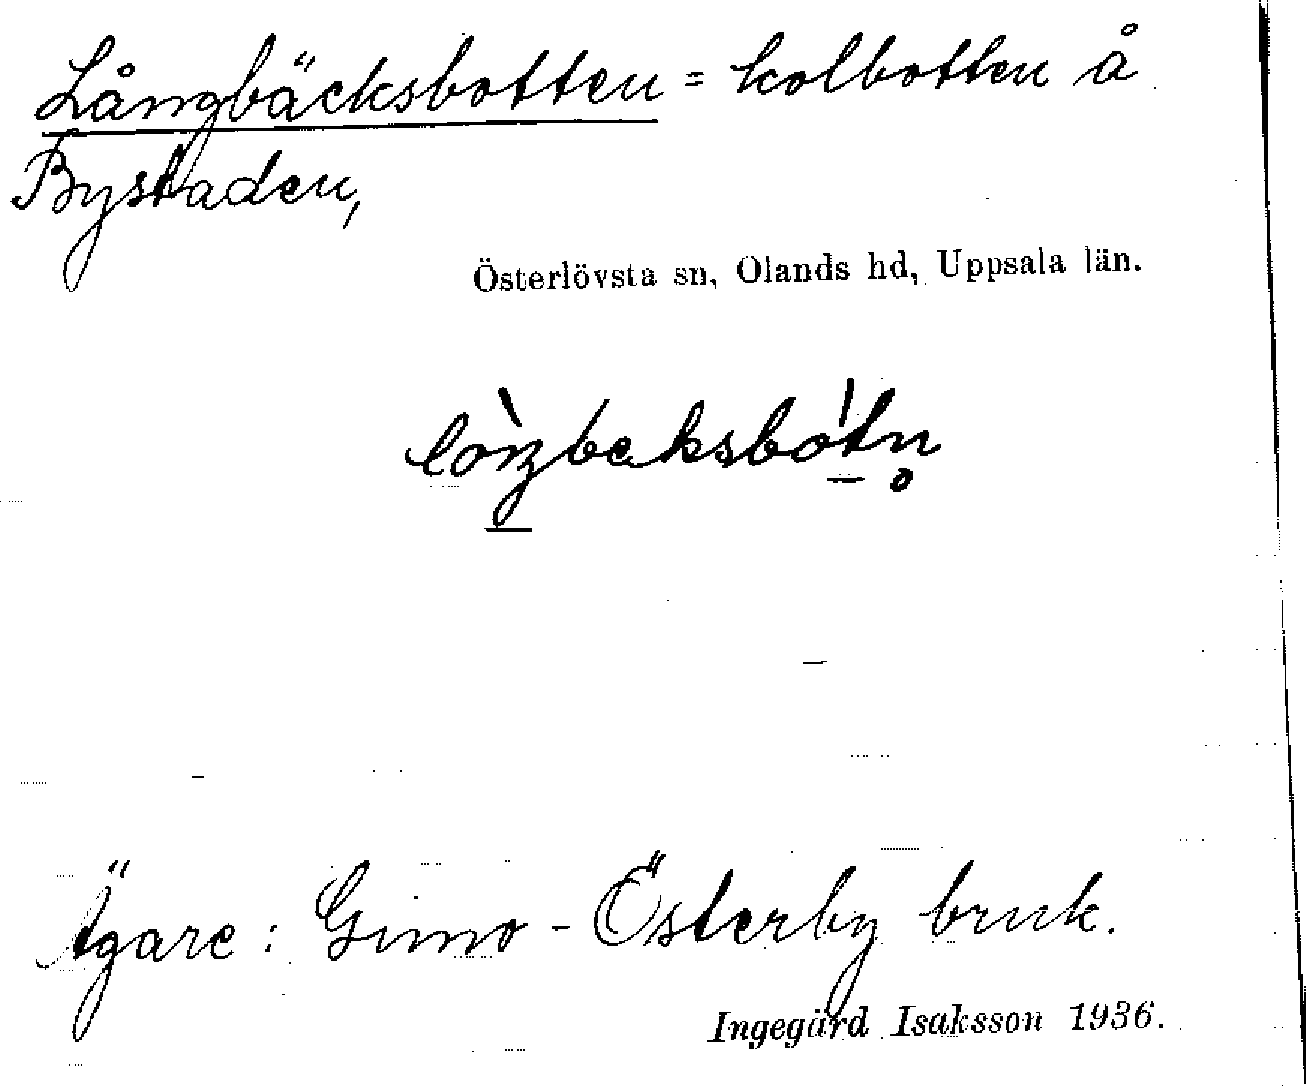 Långbäcksbotten = kolbotten å
Bystaden,
Österlövsta sn, Olands hd, Uppsala län.
Ägare: Gimo-Österby bruk.
Ingegärd Isaksson 1936.